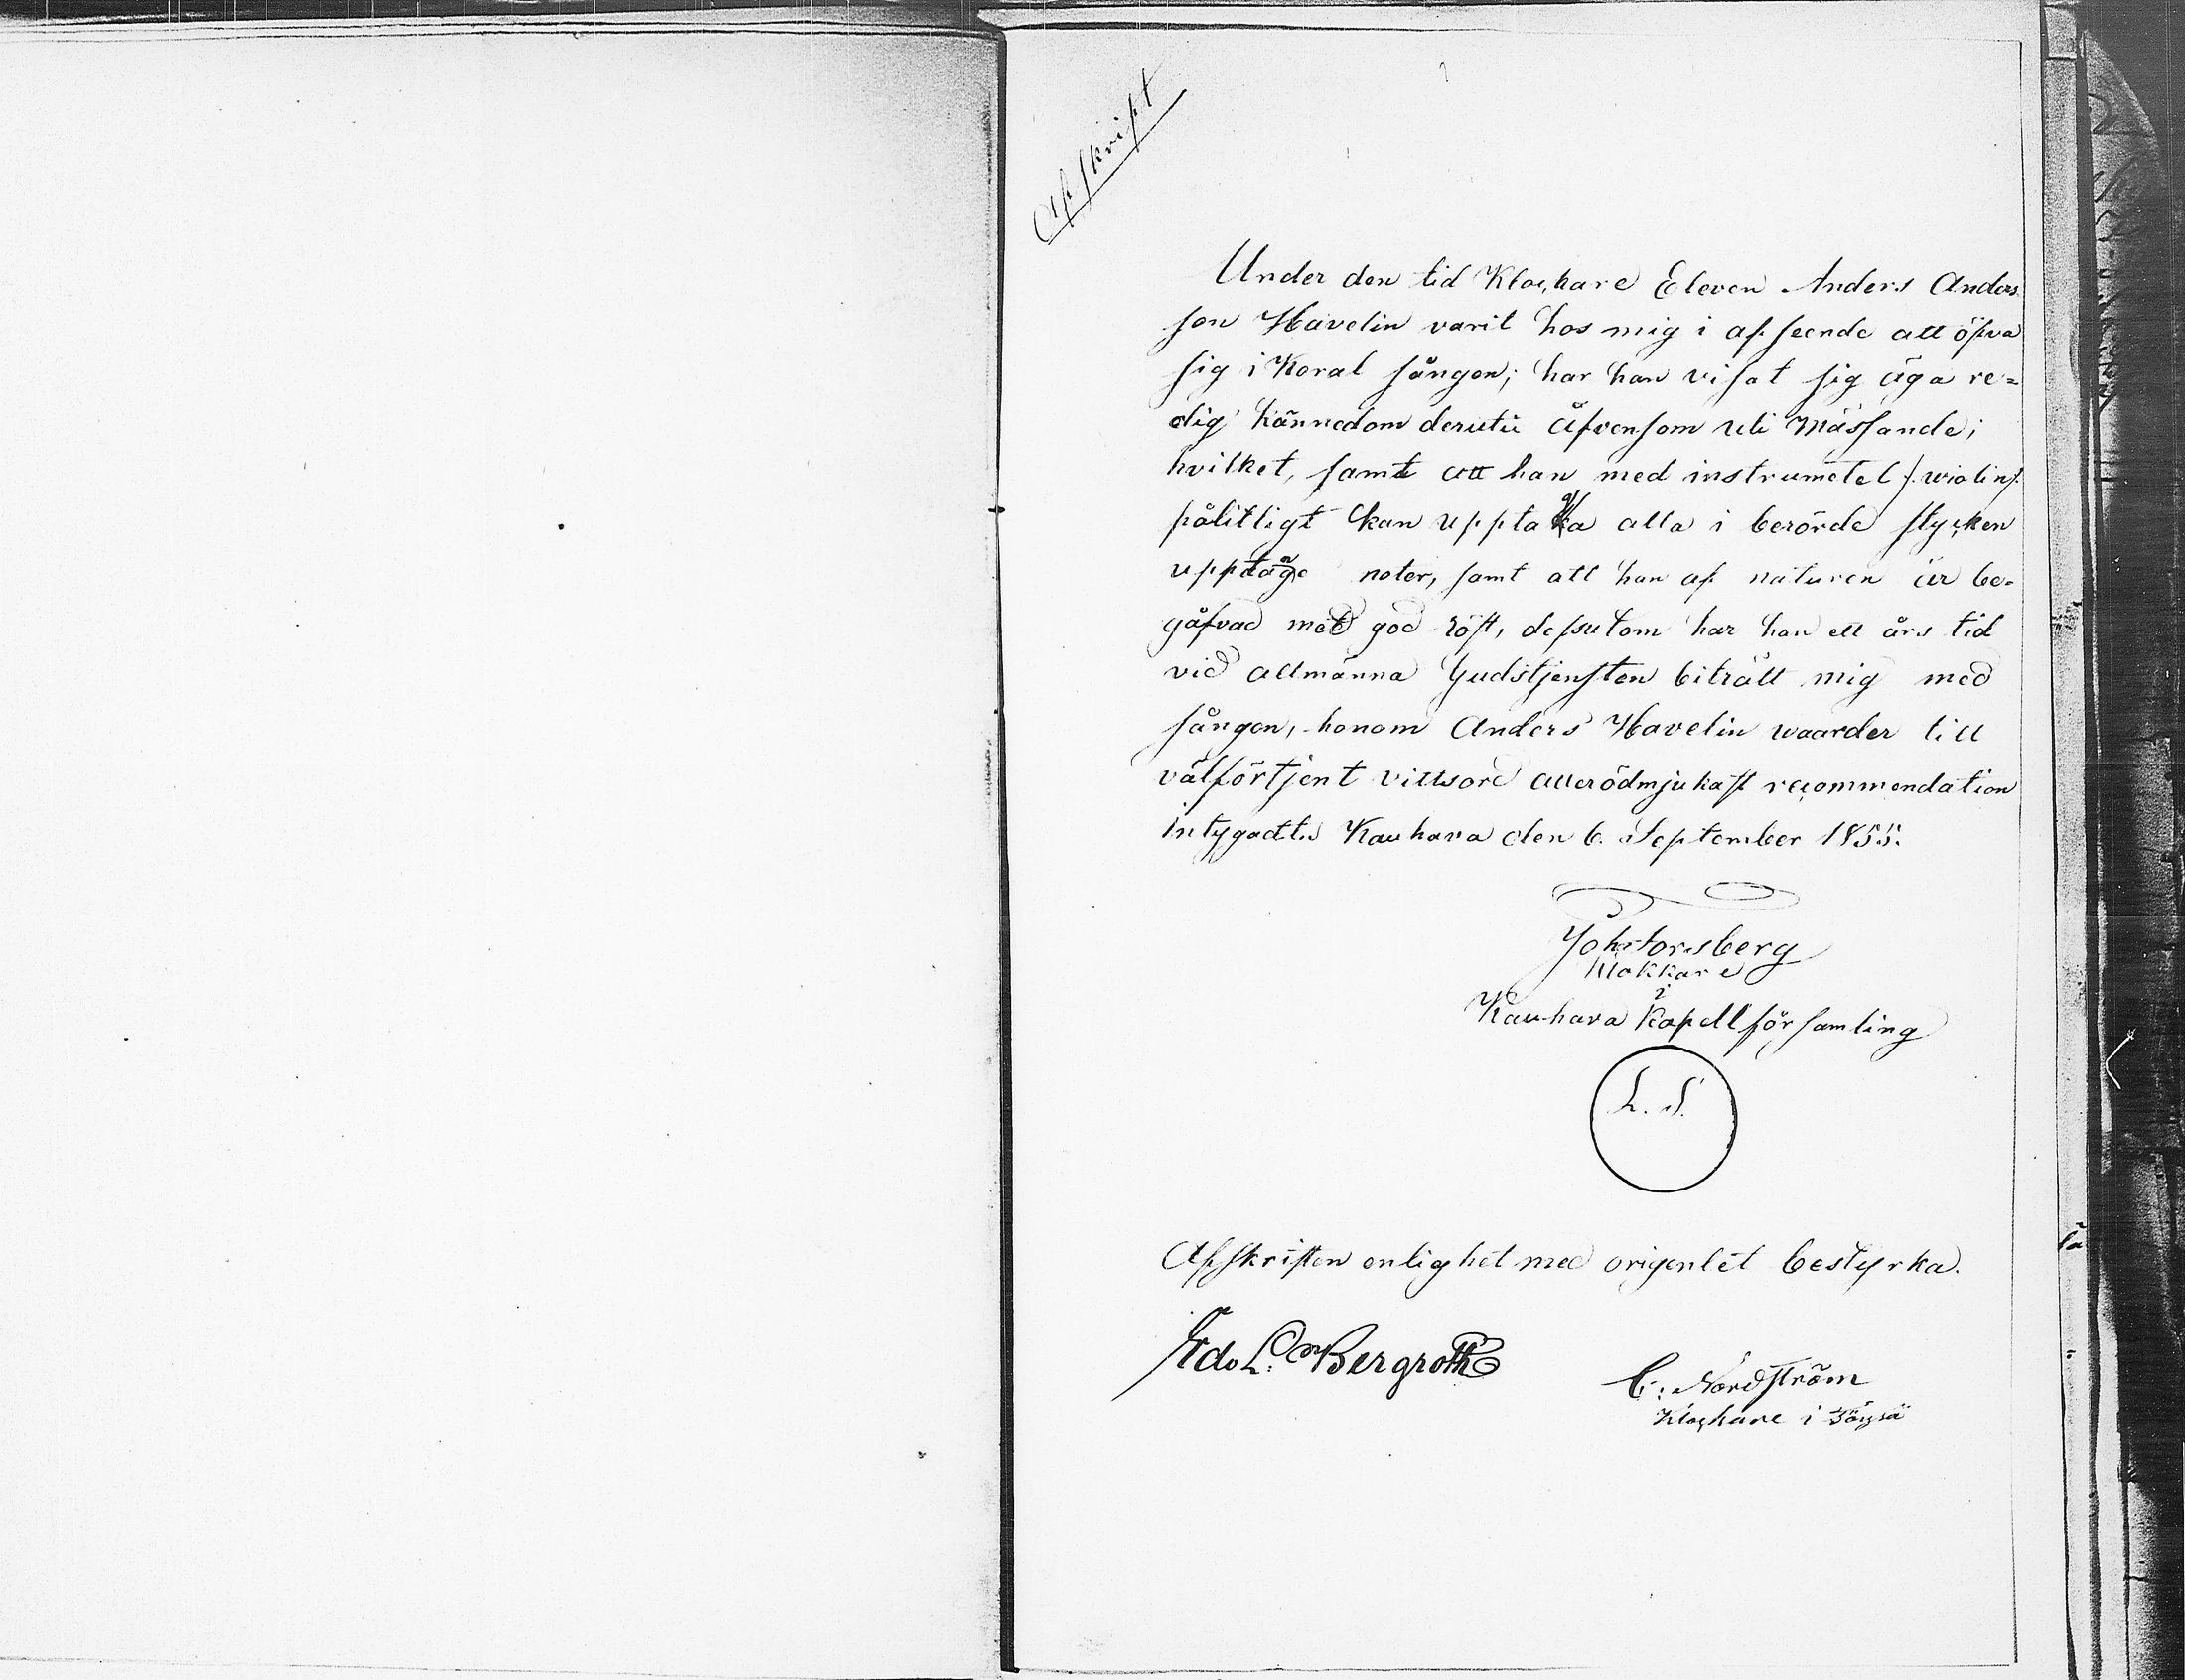 Afskrift
Under den tid Klockare Eleven Anders Anders
son Havelin varit hos mig i afseende att öfva
sig i Koral sången; har han visat sig äga re=
dig kännedom derutii äfvensom uti Mässande;
hvilket, samt att han med instrumetet /: wiolin :/
pålitligt kan upptaga alla i berörde stycken
upptagne noter, samt att han af naturen är be-
gåfvad med god röst, dessutom har han ett års tid
vid allmänna Gudstjensten biträtt mig med
sången, honom Anders Havelin waarder till
välförtjent vittsord allerödmjukast recommendation
intygadtes Kauhava den 6. September 1855.
Joh Forssberg
Klokkare
i
Kauhava Kapellförsamling
L. S.
Afskriften enlighet med origenlet bestyrka.
Edv L. Bergroth
C: Nordström
Klockare i Töysä